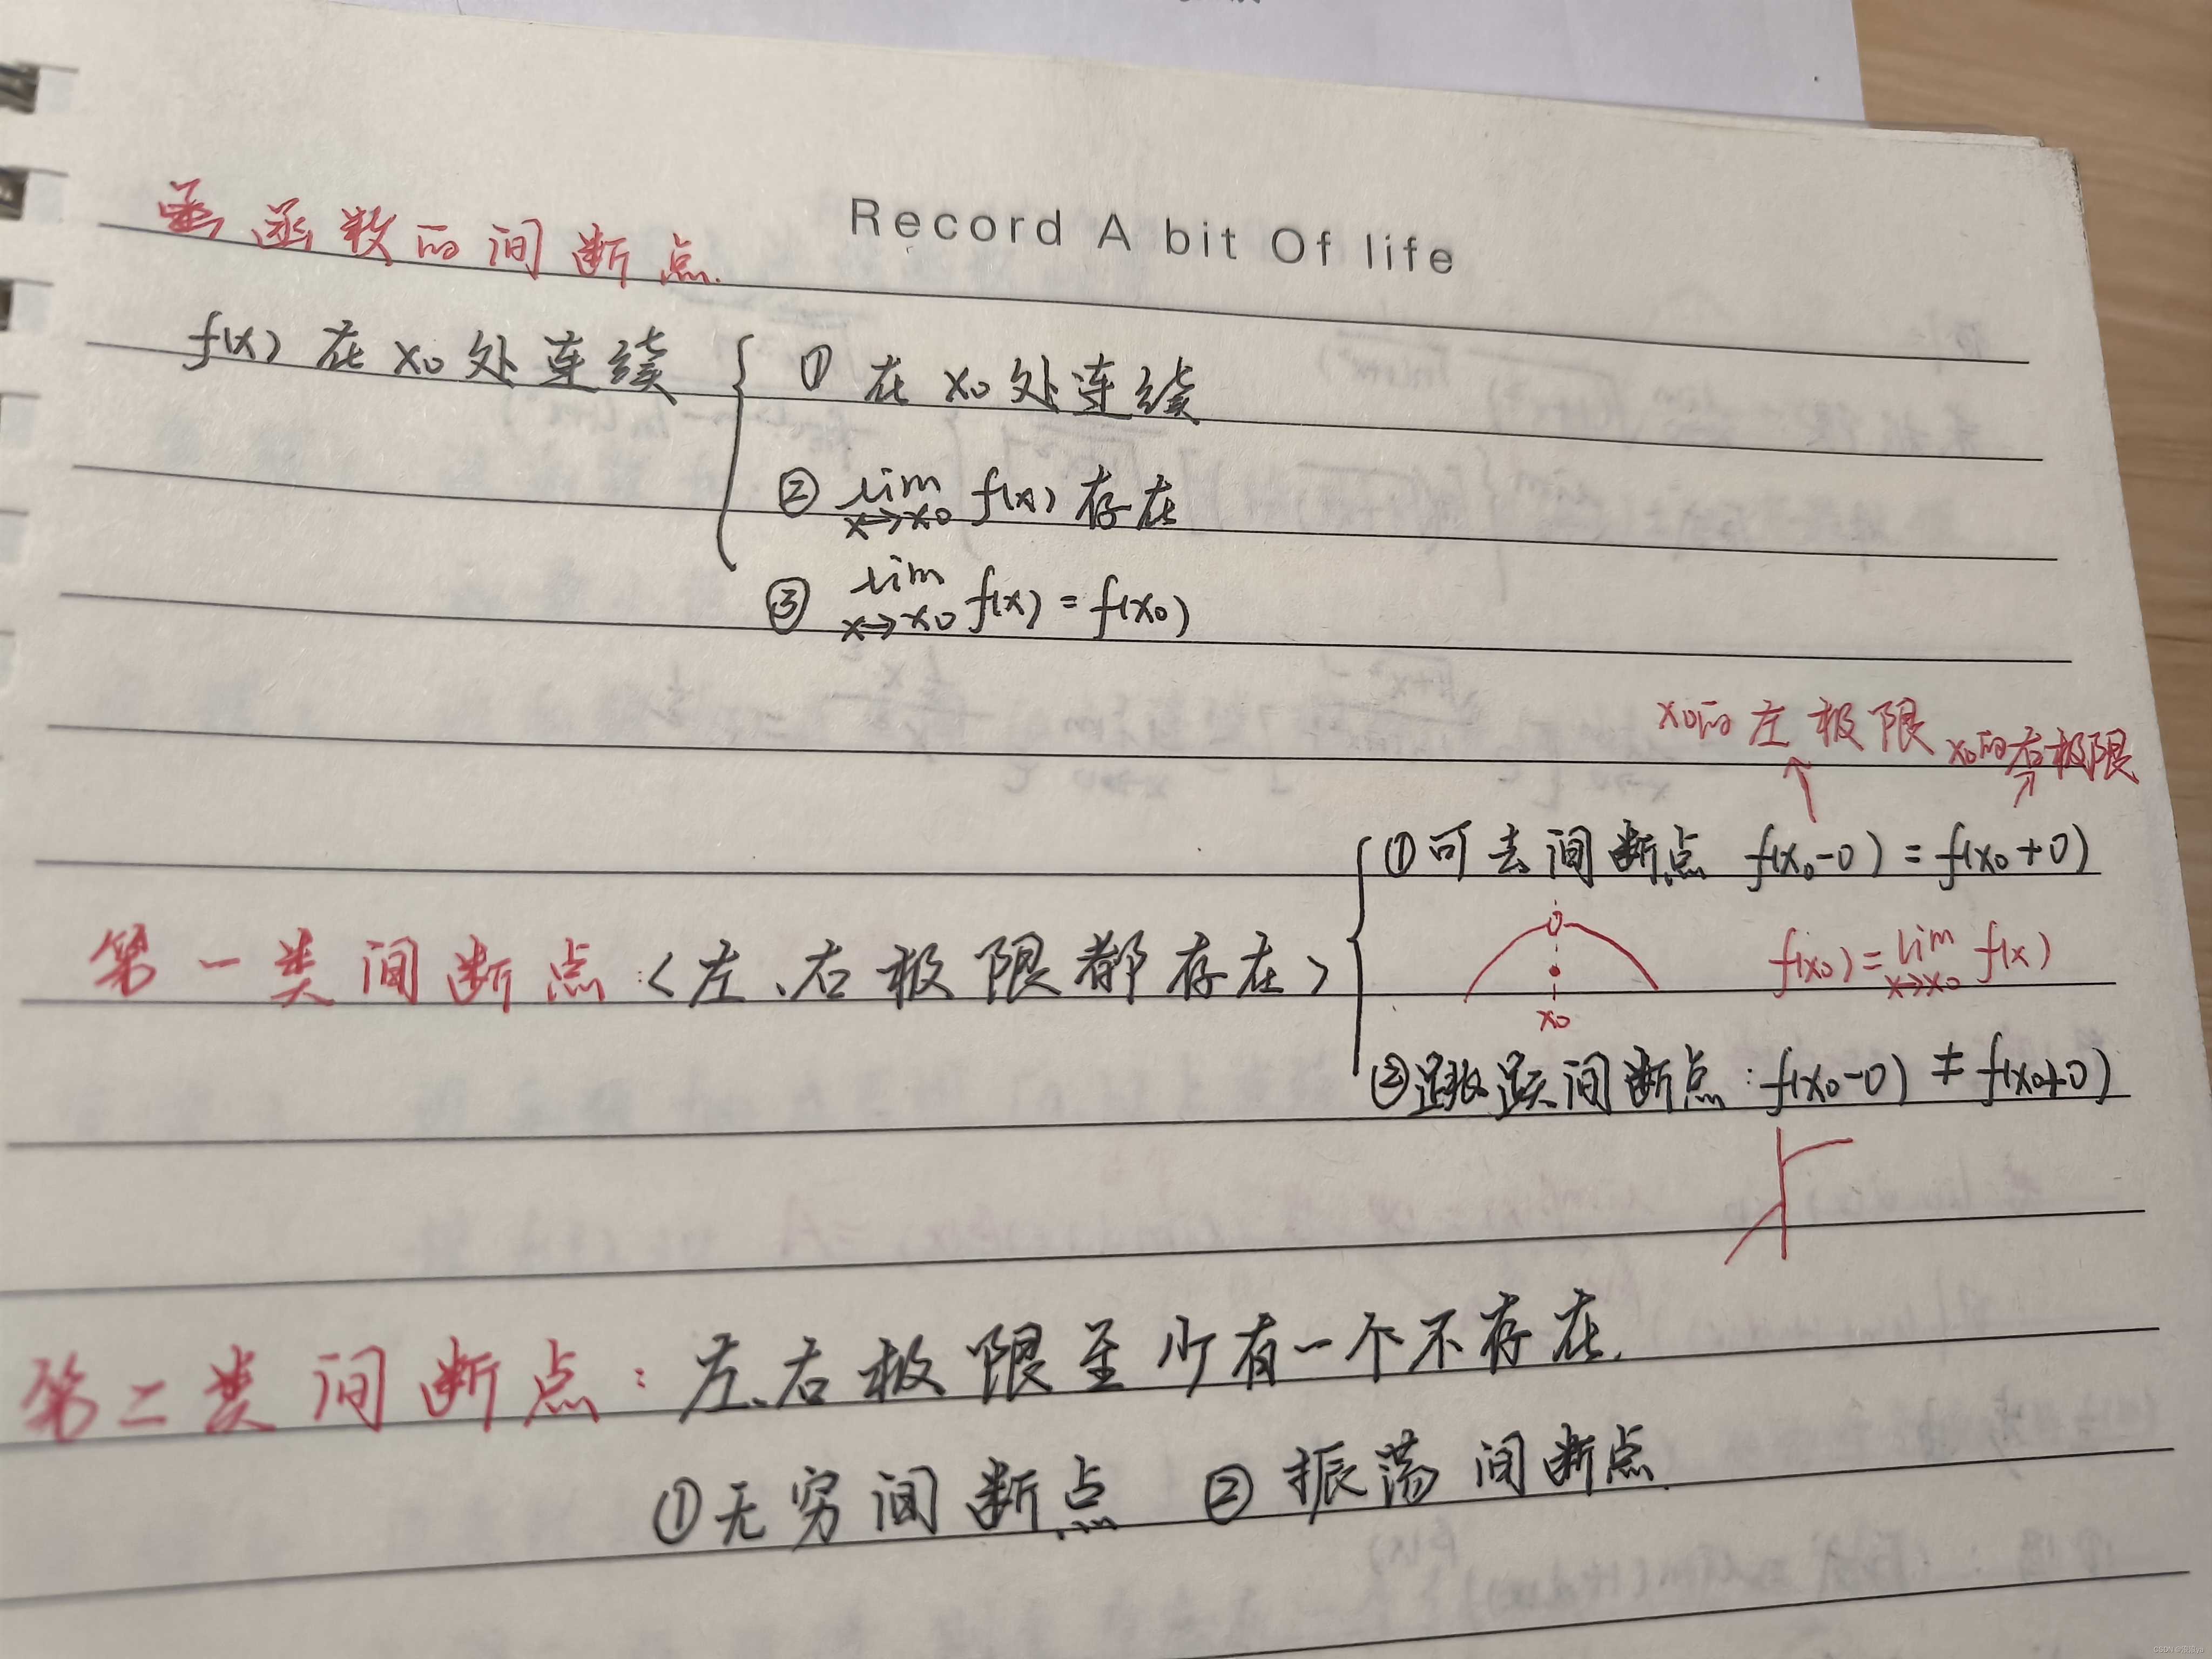 Record A bit Of life
函数的间断点.
f(x) 在 x₀ 处连续
① 在 x₀ 处连续
② lim x→x₀ f(x) 存在
③ lim x→x₀ f(x) = f(x₀)
x₀的左极限 x₀的右极限
① 可去间断点 f(x₀-0) = f(x₀+0)
第一类间断点:<左、右极限都存在>
f(x₀) = lim x→x₀ f(x)
x₀
② 跳跃间断点:f(x₀-0) ≠ f(x₀+0)
第二类间断点:左、右极限至少有一个不存在.
① 无穷间断点 ② 振荡间断点.